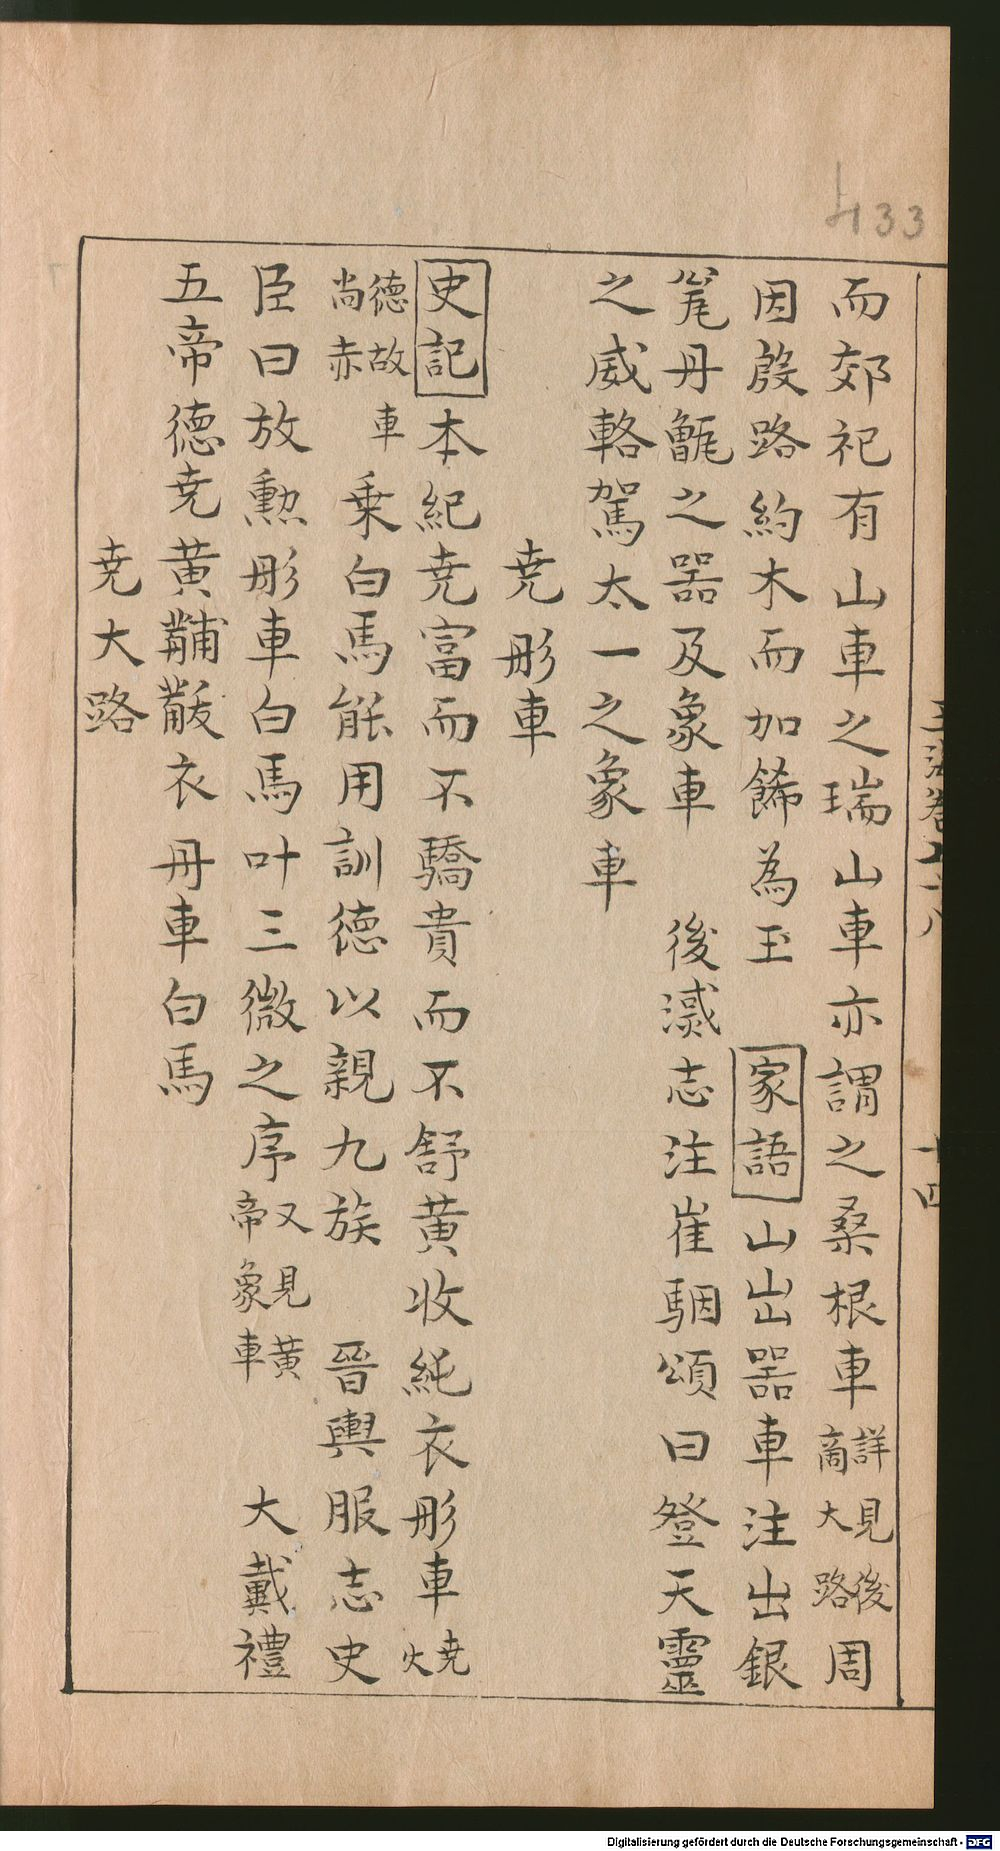 433
玉海卷七十八
十四
而郊祀有山車之瑞山車亦謂之桑根車詳見後商大路周
因殷路約木而加餙為玉 家語山出器車注出銀
甕丹甑之器及象車 後漢志注崔駰頌曰登天靈
之威輅駕太一之象車
尭彤車
史記本紀尭富而不驕貴而不舒黄收純衣彤車尭火
德故尚赤車乗白馬能用訓德以親九族 晉輿服志史
臣曰放勲彤車白馬叶三微之序又見黄帝象車 大戴禮
五帝德尭黄黼黻衣丹車白馬
尭大路
Digitalisierung gefördert durch die Deutsche Forschungsgemeinschaft - DFG